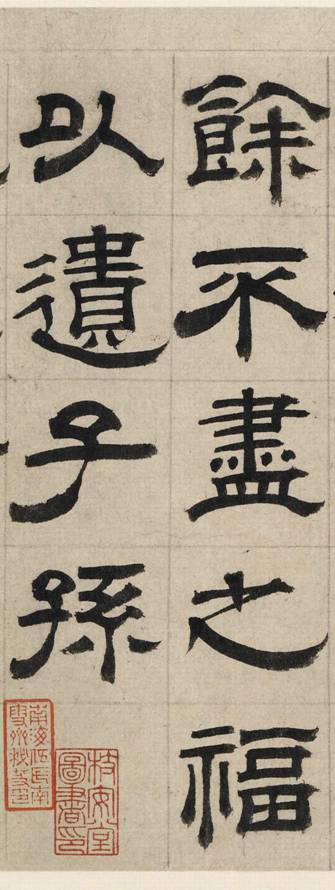 餘不盡之福
以遺子孫